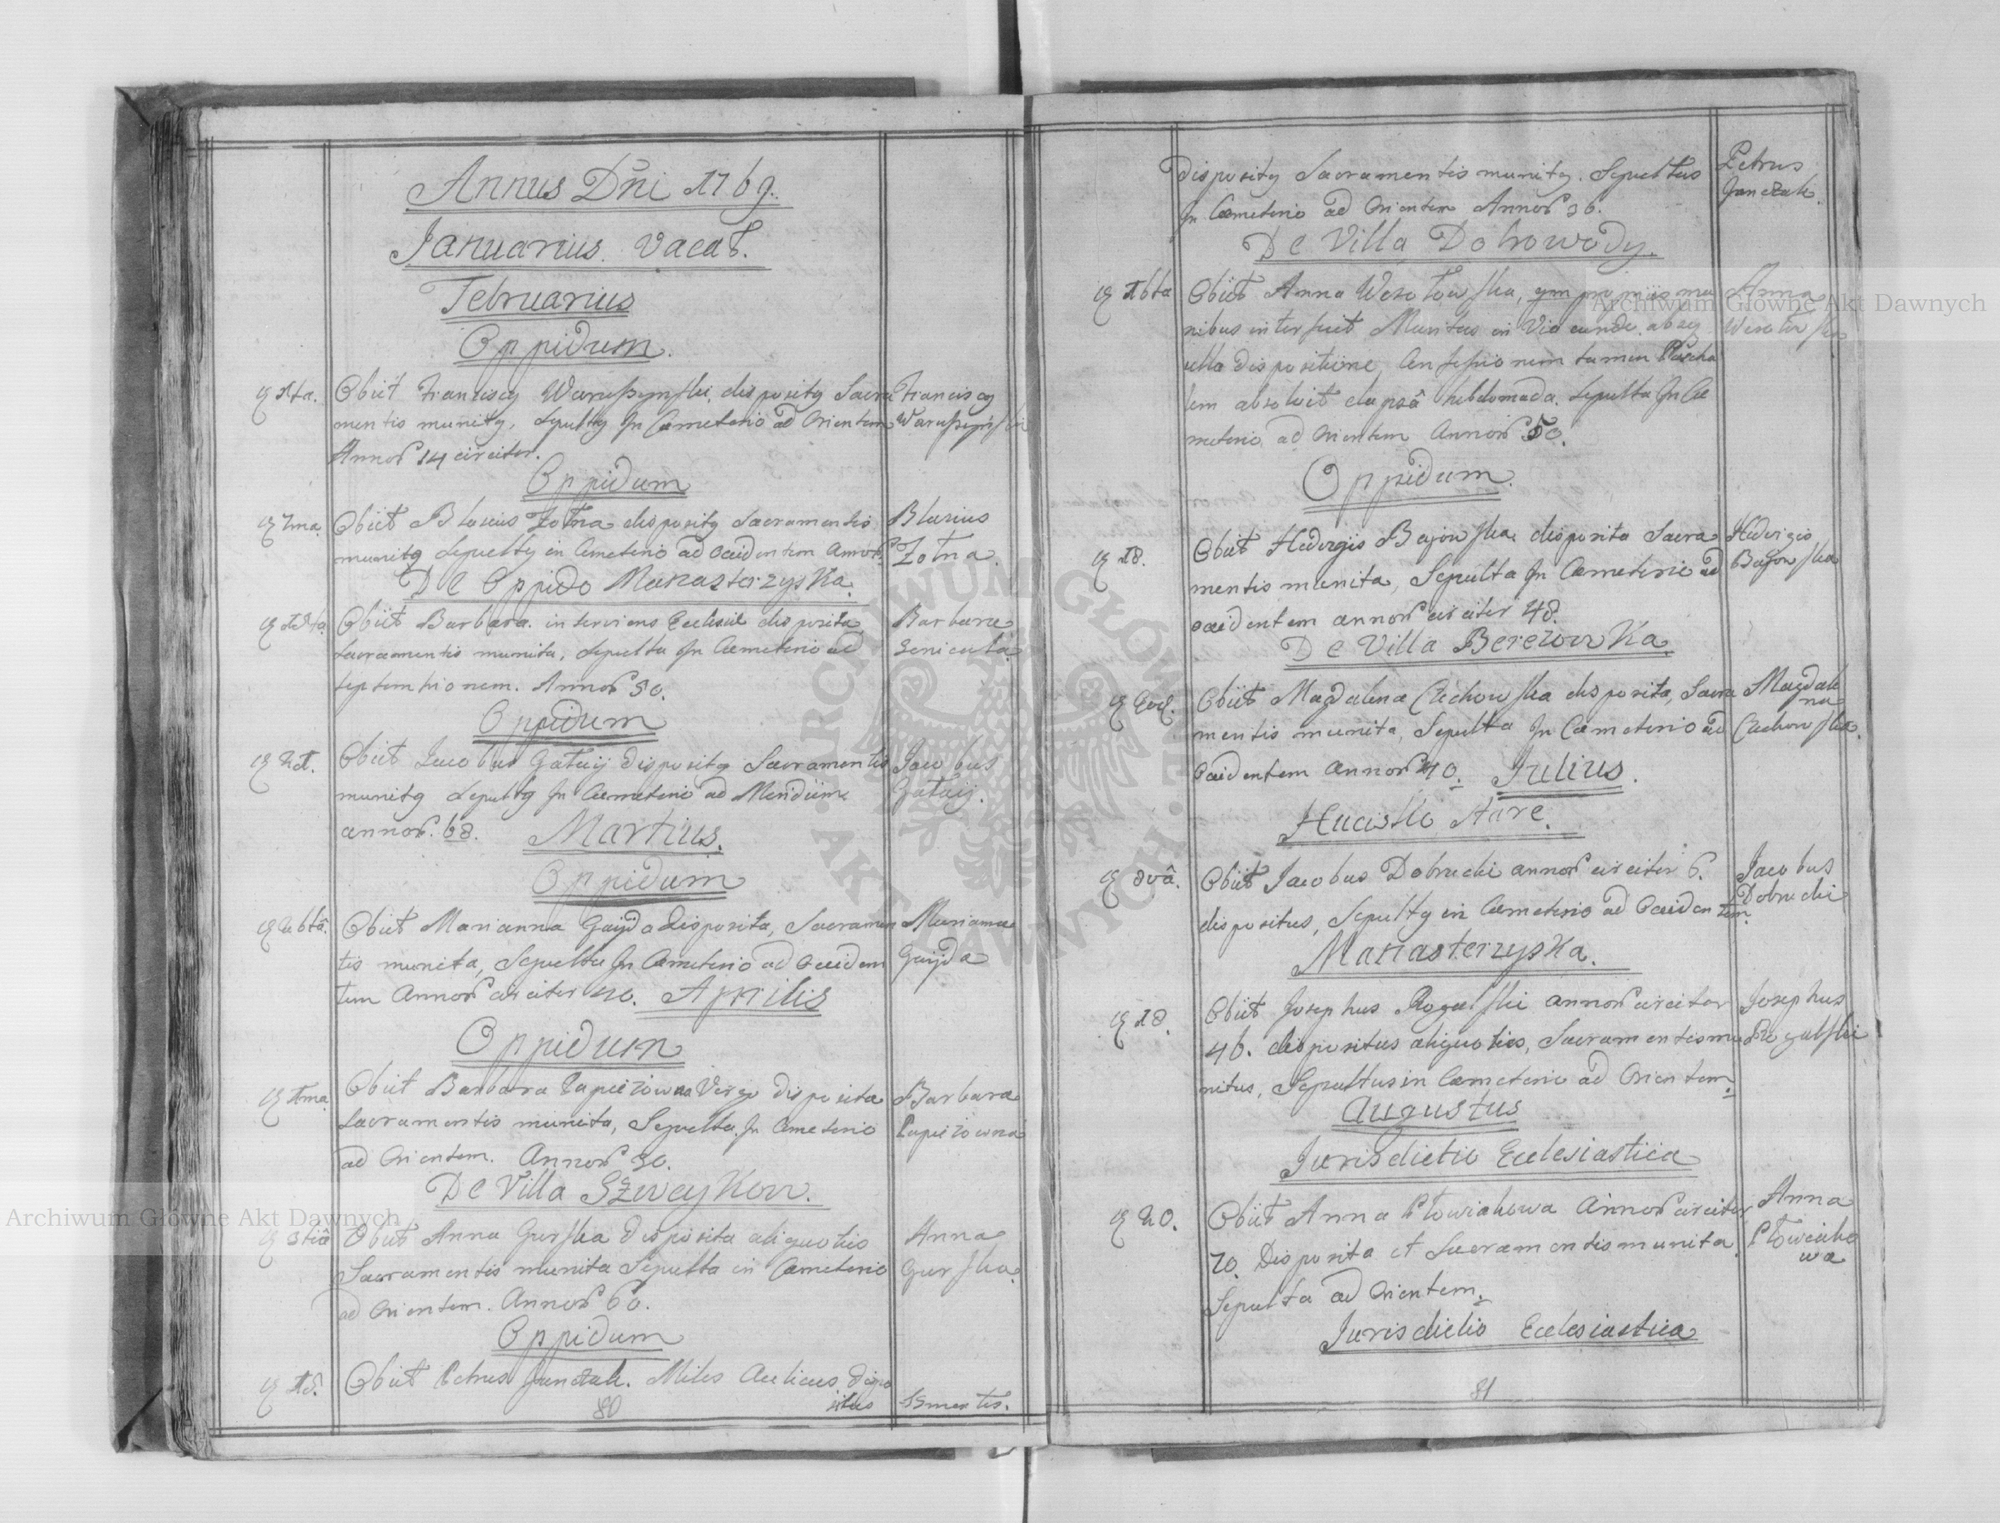 Annus Dñi 1769.
Januarius. Vacat.
Februarius
Oppidum.
Obiit Franciscq Waruszynski, dispositq Sacra
mentis munitq, Sepultq In Cæmeterio ad Orientem
Annor 14 circiter.
Franciscq
Waruszynski
Oppidum
7ma
Obiit Blasius Zołna dispositq Sacramentis
munitq Sepultq in Cæmeterio ad Occidentem Annor
Blasius
Zołna
De Oppido Manasterzyska.
Obiit Barbara inserviens Ecclesiæ disposita
Sacramentis munita, Sepulta In Cæmeterio ad
septemtrionem. Annor 50.
Barbara
Oppidum
21.
Obiit Jacobus Gałuij dispositq Sacramentis
munitq Sepultq In Cæmeterio ad Meridiem
annor. 68. Martius.
Jacobus
Oppidum
26tâ.
Obiit Marianna Gayda disposita, Sacramen
tis munita, Sepulta In Cæmeterio ad Occiden
tem Annor circiter 40. Aprilis
Marianna
Gayda
Oppidum
Obiit Barbara Papieżowna Virgo disposita
Sacramentis munita, Sepulta In Cæmeterio
ad Orientem. Annor 30.
Barbara
Papieżowna
De Villa Szweykow.
3tiâ
Obiit Anna Gurska disposita aliquoties
Sacramentis munita Sepulta in Cæmeterio
ad Orientem. Annor 60.
Anna
Gurska.
Oppidum
15.
Obiit Petrus Janczak. Miles Aulicus dispo
situs
80
dispositq Sacramentis munitq. Sepultus
In Cæmeterio ad Orientem Annor 36.
Petrus
Janczak.
De Villa Dobrowody.
16ta
Obiit Anna Wesołowska, qm propriis ma
nibus interfecit Maritus in Via eundo absq
ulla dispositione, Confessionem tamen Pascha
lem absolvit elapsâ hebdomada. Sepulta In Cæ
meterio ad Orientem Annor 50.
Anna
Wesołowska
Oppidum.
18.
Obiit Hedvigis Bajowska disposita Sacra
mentis munita, Sepulta In Cæmeterio ad
occidentem annor circiter 48.
Hedvigis
Bajowska
De Villa Berezowka.
Obiit Magdalena Czechowska disposita, Sacra
mentis munita, Sepulta In Cæmeterio ad
Occidentem annor 40. Julius.
Magdale
na
Czechowska.
Hucisko Stare.
Obiit Jacobus Dobrucki annor circiter 6.
dispositus, Sepultq in Cæmeterio ad Occiden
tem.
Jacobus
Dobrucki
Manasterzyska.
18.
Obiit Josephus Rogalski annor circiter
46. dispositus aliquoties, Sacramentis mu
nitus, Sepultus in Cæmeterio ad Orientem.
Josephus
Rogalski
Augustus
Jurisdictio Ecclesiastica
20.
Obiit Anna Płowiakowa Annor circiter
70. Disposita et Sacramentis munita
Sepulta ad Orientem.
Anna
Płowiako
wa
Jurisdictio Ecclesiastica
81
Archiwum Główne Akt Dawnych
Archiwum Główne Akt Dawnych
ARCHIWUM GŁÓWNE AKT DAWNYCH